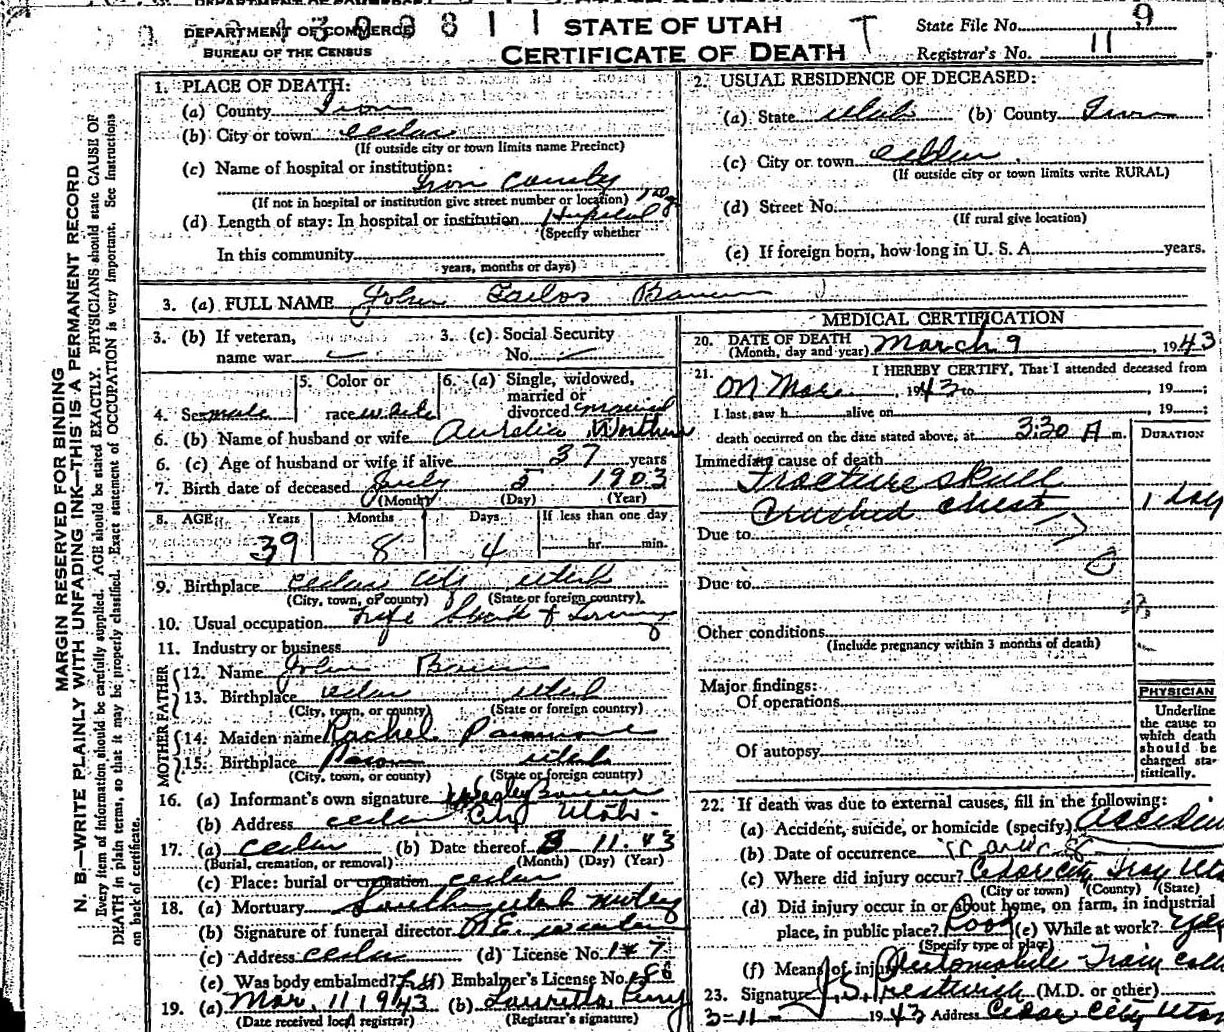 DEPARTMENT OF COMMERCE
BUREAU OF THE CENSUS
STATE OF UTAH
CERTIFICATE OF DEATH
State File No. 9
Registrar's No. 11
MARGIN RESERVED FOR BINDING
N. B.—WRITE PLAINLY WITH UNFADING INK—THIS IS A PERMANENT RECORD
Every item of information should be carefully supplied. AGE should be stated EXACTLY. PHYSICIANS should state CAUSE OF
DEATH in plain terms, so that it may be properly classified. Exact statement of OCCUPATION is very important. See Instructions
on back of certificate.
1. PLACE OF DEATH:
(a) County Iron
(b) City or town Cedar
(If outside city or town limits name Precinct)
(c) Name of hospital or institution:
Iron County
(If not in hospital or institution give street number or location)
(d) Length of stay: In hospital or institution Hospital
(Specify whether
In this community
years, months or days)
2. USUAL RESIDENCE OF DECEASED:
(a) State Utah (b) County Iron
(c) City or town Cedar
(If outside city or town limits write RURAL)
(d) Street No.
(If rural give location)
(e) If foreign born, how long in U. S. A. years.
3. (a) FULL NAME John
3. (b) If veteran, name war
3. (c) Social Security No.
4. Sex male
5. Color or race white
6. (a) Single, widowed, married or divorced married
6. (b) Name of husband or wife Aurelia
6. (c) Age of husband or wife if alive 37 years
7. Birth date of deceased July 5 1903
(Month) (Day) (Year)
8. AGE Years Months Days If less than one day
39 8 4 hr. min.
9. Birthplace Cedar City Utah
(City, town, or county) (State or foreign country)
10. Usual occupation
11. Industry or business
FATHER
12. Name John
13. Birthplace Cedar Utah
(City, town, or county) (State or foreign country)
MOTHER
14. Maiden name Rachel
15. Birthplace Utah
(City, town, or county) (State or foreign country)
16. (a) Informant's own signature Wesley
(b) Address Cedar City Utah.
17. (a) Cedar (b) Date thereof 3-11-43
(Burial, cremation, or removal) (Month) (Day) (Year)
(c) Place: burial or cremation Cedar
18. (a) Mortuary Southern Utah
(b) Signature of funeral director
(c) Address Cedar (d) License No.
(e) Was body embalmed? (f) Embalmer's License No.
19. (a) Mar. 11 1943 (b) Lauretta Perry
(Date received local registrar) (Registrar's signature)
MEDICAL CERTIFICATION
20. DATE OF DEATH
(Month, day and year) March 9, 1943
21. I HEREBY CERTIFY, That I attended deceased from
On Mar 1943 to , 19 ;
I last saw h alive on , 19 ;
death occurred on the date stated above, at 3:30 A m.
DURATION
Immediate cause of death
Fracture skull
Crushed chest 1 day
Due to
Due to
Other conditions
(Include pregnancy within 3 months of death)
Major findings:
Of operations
Of autopsy
PHYSICIAN
Underline
the cause to
which death
should be
charged sta-
tistically.
22. If death was due to external causes, fill in the following:
(a) Accident, suicide, or homicide (specify) Accident
(b) Date of occurrence
(c) Where did injury occur? Cedar City Iron Utah
(City or town) (County) (State)
(d) Did injury occur in or about home, on farm, in industrial
place, in public place? Road (e) While at work? Yes
(Specify type of place)
(f) Means of injury Automobile-Train
23. Signature J. S. Prestwich (M.D. or other)
3-11- 1943 Address Cedar City Utah